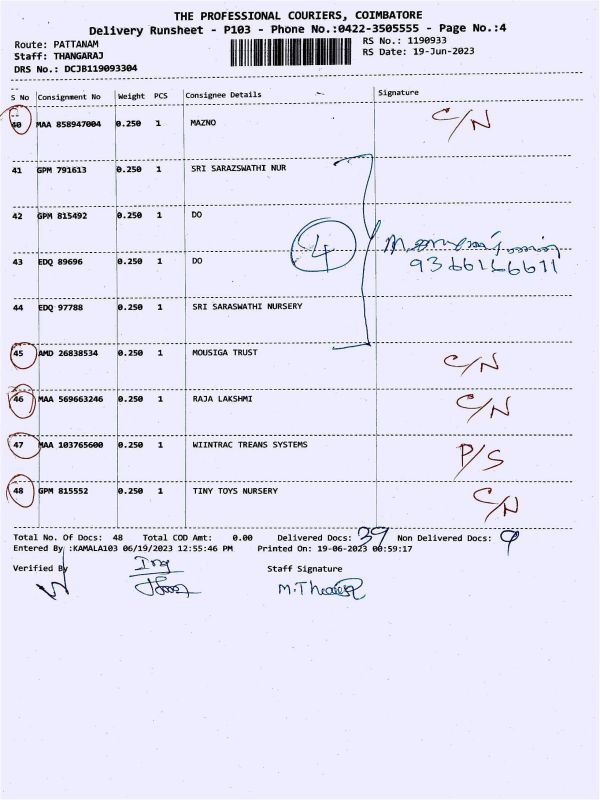 THE PROFESSIONAL COURIERS, COIMBATORE
Delivery Runsheet - P103 - Phone No.:0422-3505555 - Page No.:4
Route: PATTANAM RS No.: 1190933
Staff: THANGARAJ RS Date: 19-Jun-2023
DRS No.: DCJB119093304
S No Consignment No Weight PCS Consignee Details Signature
40 MAA 858947004 0.250 1 MAZNO C/N
41 GPM 791613 0.250 1 SRI SARAZSWATHI NUR
42 GPM 815492 0.250 1 DO
4
43 EDQ 89696 0.250 1 DO 9366156611
44 EDQ 97788 0.250 1 SRI SARASWATHI NURSERY
45 AMD 26838534 0.250 1 MOUSIGA TRUST C/N
46 MAA 569663246 0.250 1 RAJA LAKSHMI C/N
47 MAA 103765600 0.250 1 WIINTRAC TREANS SYSTEMS P/S
48 GPM 815552 0.250 1 TINY TOYS NURSERY C/N
Total No. Of Docs: 48 Total COD Amt: 0.00 Delivered Docs: 39 Non Delivered Docs: 9
Entered By :KAMALA103 06/19/2023 12:55:46 PM Printed On: 19-06-2023 00:59:17
Verified By Staff Signature